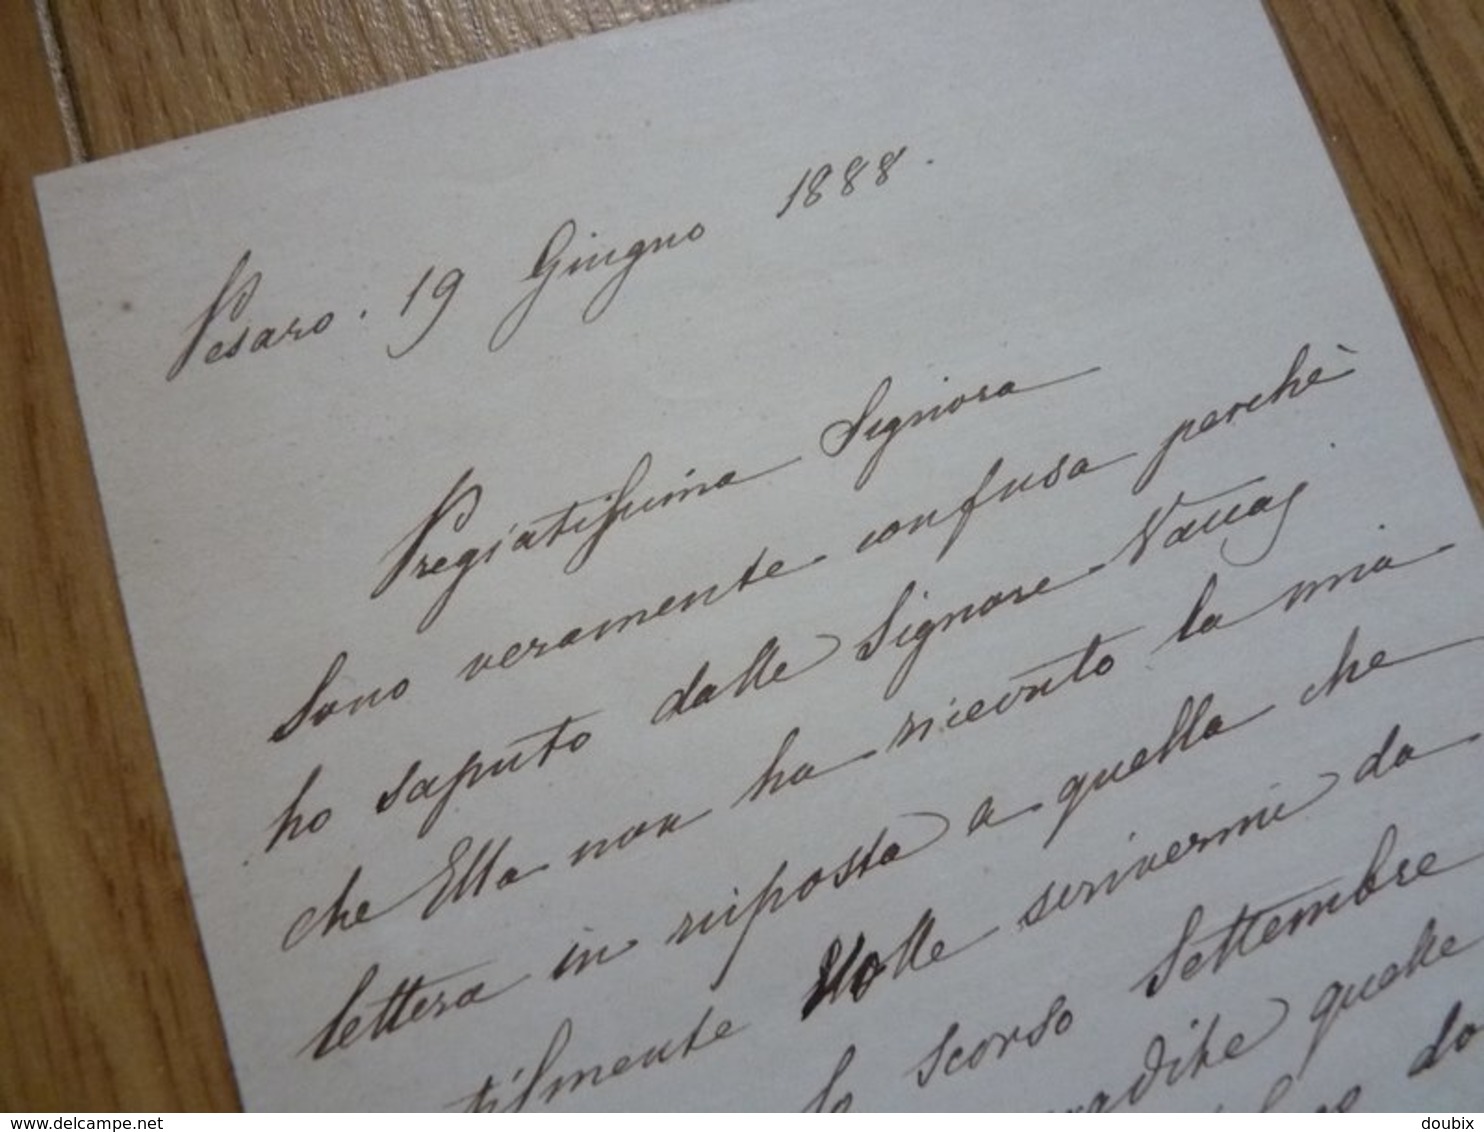 Pesaro. 19 Giugno 1888.
Pregiatissima Signora
Sono veramente confusa perchè
ho saputo dalle Signore Vaccaj
che Ella non ha ricevuto la mia
lettera in risposta a quella che
volle scrivermi da
scorso Settembre
gradite quelle
do
www.delcampe.net
doubix